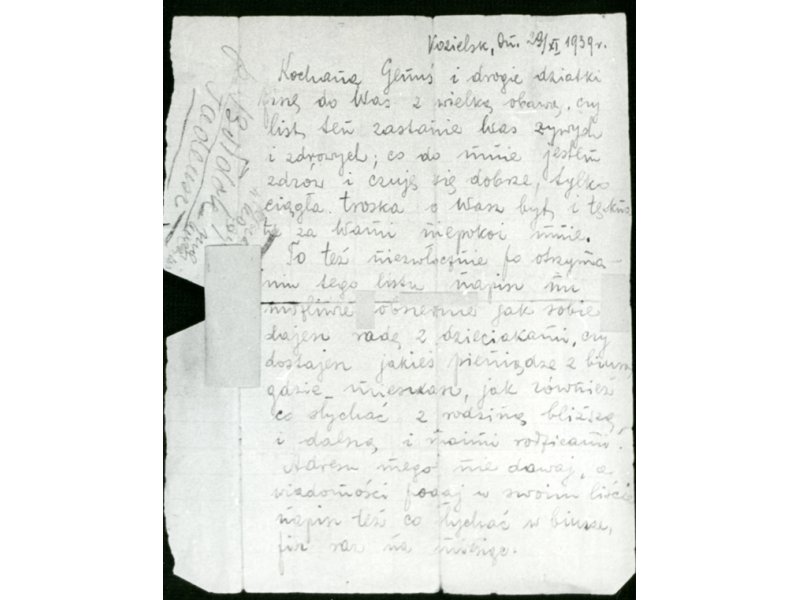 Kozielsk, dn. 29/XI 1939 r.
Kochana Geniuś i drogie dziatki
piszę do Was z wielką obawą, czy
list ten zastanie Was żywych
i zdrowych; co do mnie jestem
zdrów i czuję się dobrze, tylko
ciągła troska o Wasz byt i tęskno-
ta za Wami niepokoi mnie.
To też niezwłocznie po otrzyma-
niu tego listu napisz mi
możliwie obszernie jak sobie
dajesz radę z dzieciakami, czy
dostajesz jakieś pieniądze z biura,
gdzie mieszkasz, jak również
co słychać z rodziną bliższą
i dalszą i moimi rodzicami.
Adresu mego nie dawaj, a
wiadomości podaj w swoim liście
napisz też co słychać w biurze,
pisz raz na miesiąc.
Tadeusz